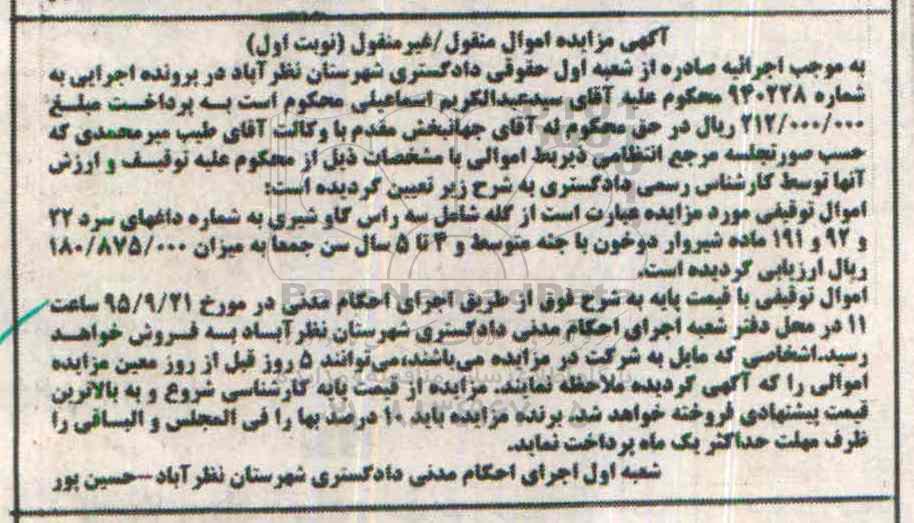 آگهی مزایده اموال منقول/غیرمنقول (نوبت اول)
به موجب اجرائیه صادره از شعبه اول حقوقی دادگستری شهرستان نظرآباد در پرونده اجرایی به
شماره ۹۴۰۲۲۸ محکوم علیه آقای سیدعبدالکریم اسماعیلی محکوم است به پرداخت مبلغ
۲۱۲/۰۰۰/۰۰۰ ریال در حق محکوم له آقای جهانبخش مقدم با وکالت آقای طیب میرمحمدی که
حسب صورتجلسه مرجع انتظامی ذیربط اموالی با مشخصات ذیل از محکوم علیه توقیف و ارزش
آنها توسط کارشناس رسمی دادگستری به شرح زیر تعیین گردیده است:
اموال توقیفی مورد مزایده عبارت است از گله شامل سه راس گاو شیری به شماره داغهای سرد ۲۲
و ۹۲ و ۱۹۱ ماده شیروار دوخون با جثه متوسط و ۴ تا ۵ سال سن جمعا به میزان ۱۸۰/۸۷۵/۰۰۰
ریال ارزیابی گردیده است.
اموال توقیفی با قیمت پایه به شرح فوق از طریق اجرای احکام مدنی در مورخ ۹۵/۹/۲۱ ساعت
۱۱ در محل دفتر شعبه اجرای احکام مدنی دادگستری شهرستان نظرآباد به فروش خواهد
رسید.اشخاصی که مایل به شرکت در مزایده می‌باشند،می‌توانند ۵ روز قبل از روز معین مزایده
اموالی را که آگهی گردیده ملاحظه نمایند. مزایده از قیمت پایه کارشناسی شروع و به بالاترین
قیمت پیشنهادی فروخته خواهد شد. برنده مزایده باید ۱۰ درصد بها را فی المجلس و الباقی را
ظرف مهلت حداکثر یک ماه پرداخت نماید.
شعبه اول اجرای احکام مدنی دادگستری شهرستان نظرآباد-حسین پور
ParsNamadData